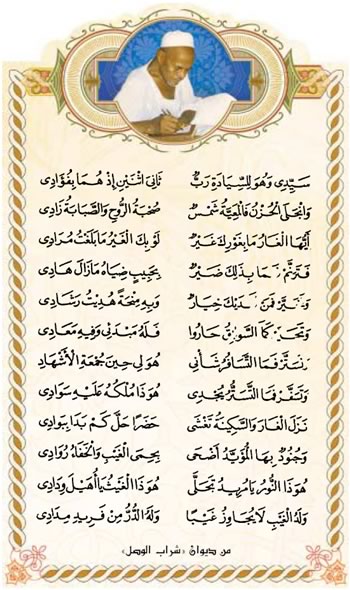 سَيِّدِى وَهُوَ لِلسِّيَادَةِ رَبٌّ ثَانِىَ اثْنَيْنِ إِذْ هُمَا بِفُؤَادِى
وَانْجَلَى الْحُزْنُ فَالْمَعِيَّةُ شَمْسٌ صُحْبَةُ الرُّوحِ وَالصَّبَابَةُ زَادِى
أَيُّهَا الْغَارُ مَا بِغَوْرِكَ غَيْرٌ لَوْ بِكَ الْغَيْرُ مَا بَلَغْتُ مُرَادِى
فَتَرَنَّمْ بِذَلِكَ بِحَبِيبٍ ضِيَاهُ مَازَالَ هَادِى
فَمَنْ خِيَارٌ وَبِهِ مِنْحَةً هُدِيتُ رَشَادِى
كَمَا حَارُوا فَلَهُ مَبْدَئِى وَفِيهِ مَعَادِى
فَمَا شَأْنِى هُوَ لِى حِينَ جُمْعَةِ الْأَشْهَادِ
فَمَا التَّسَتُّرُ يُجْدِى هُوَ ذَا مُلْكُهُ عَلَيْهِ سَوَادِى
نَزَلَ الْغَارَ وَالسَّكِينَةُ تَغْشَى حَضَرًا حَلَّ كَمْ بَدَا بِبَوَادِى
وَجُنُودٌ بِهَا الْمُؤَيَّدُ أَضْحَى بِحِمَى الْغَيْبِ وَالْخَفَاءُ رُوَادِى
هُوَ ذَا النُّورُ يَا مُرِيدُ تَجَلَّى هُوَ ذَا الْغَيْثُ يَا أُهَيْلَ وِدَادِى
وَلَهُ الْغَيْبُ لَا يُجَاوِزُ غَيْبًا وَلَهُ الدُّرُّ مِنْ فَرِيدِ مِدَادِى
من ديوان «شراب الوصل»